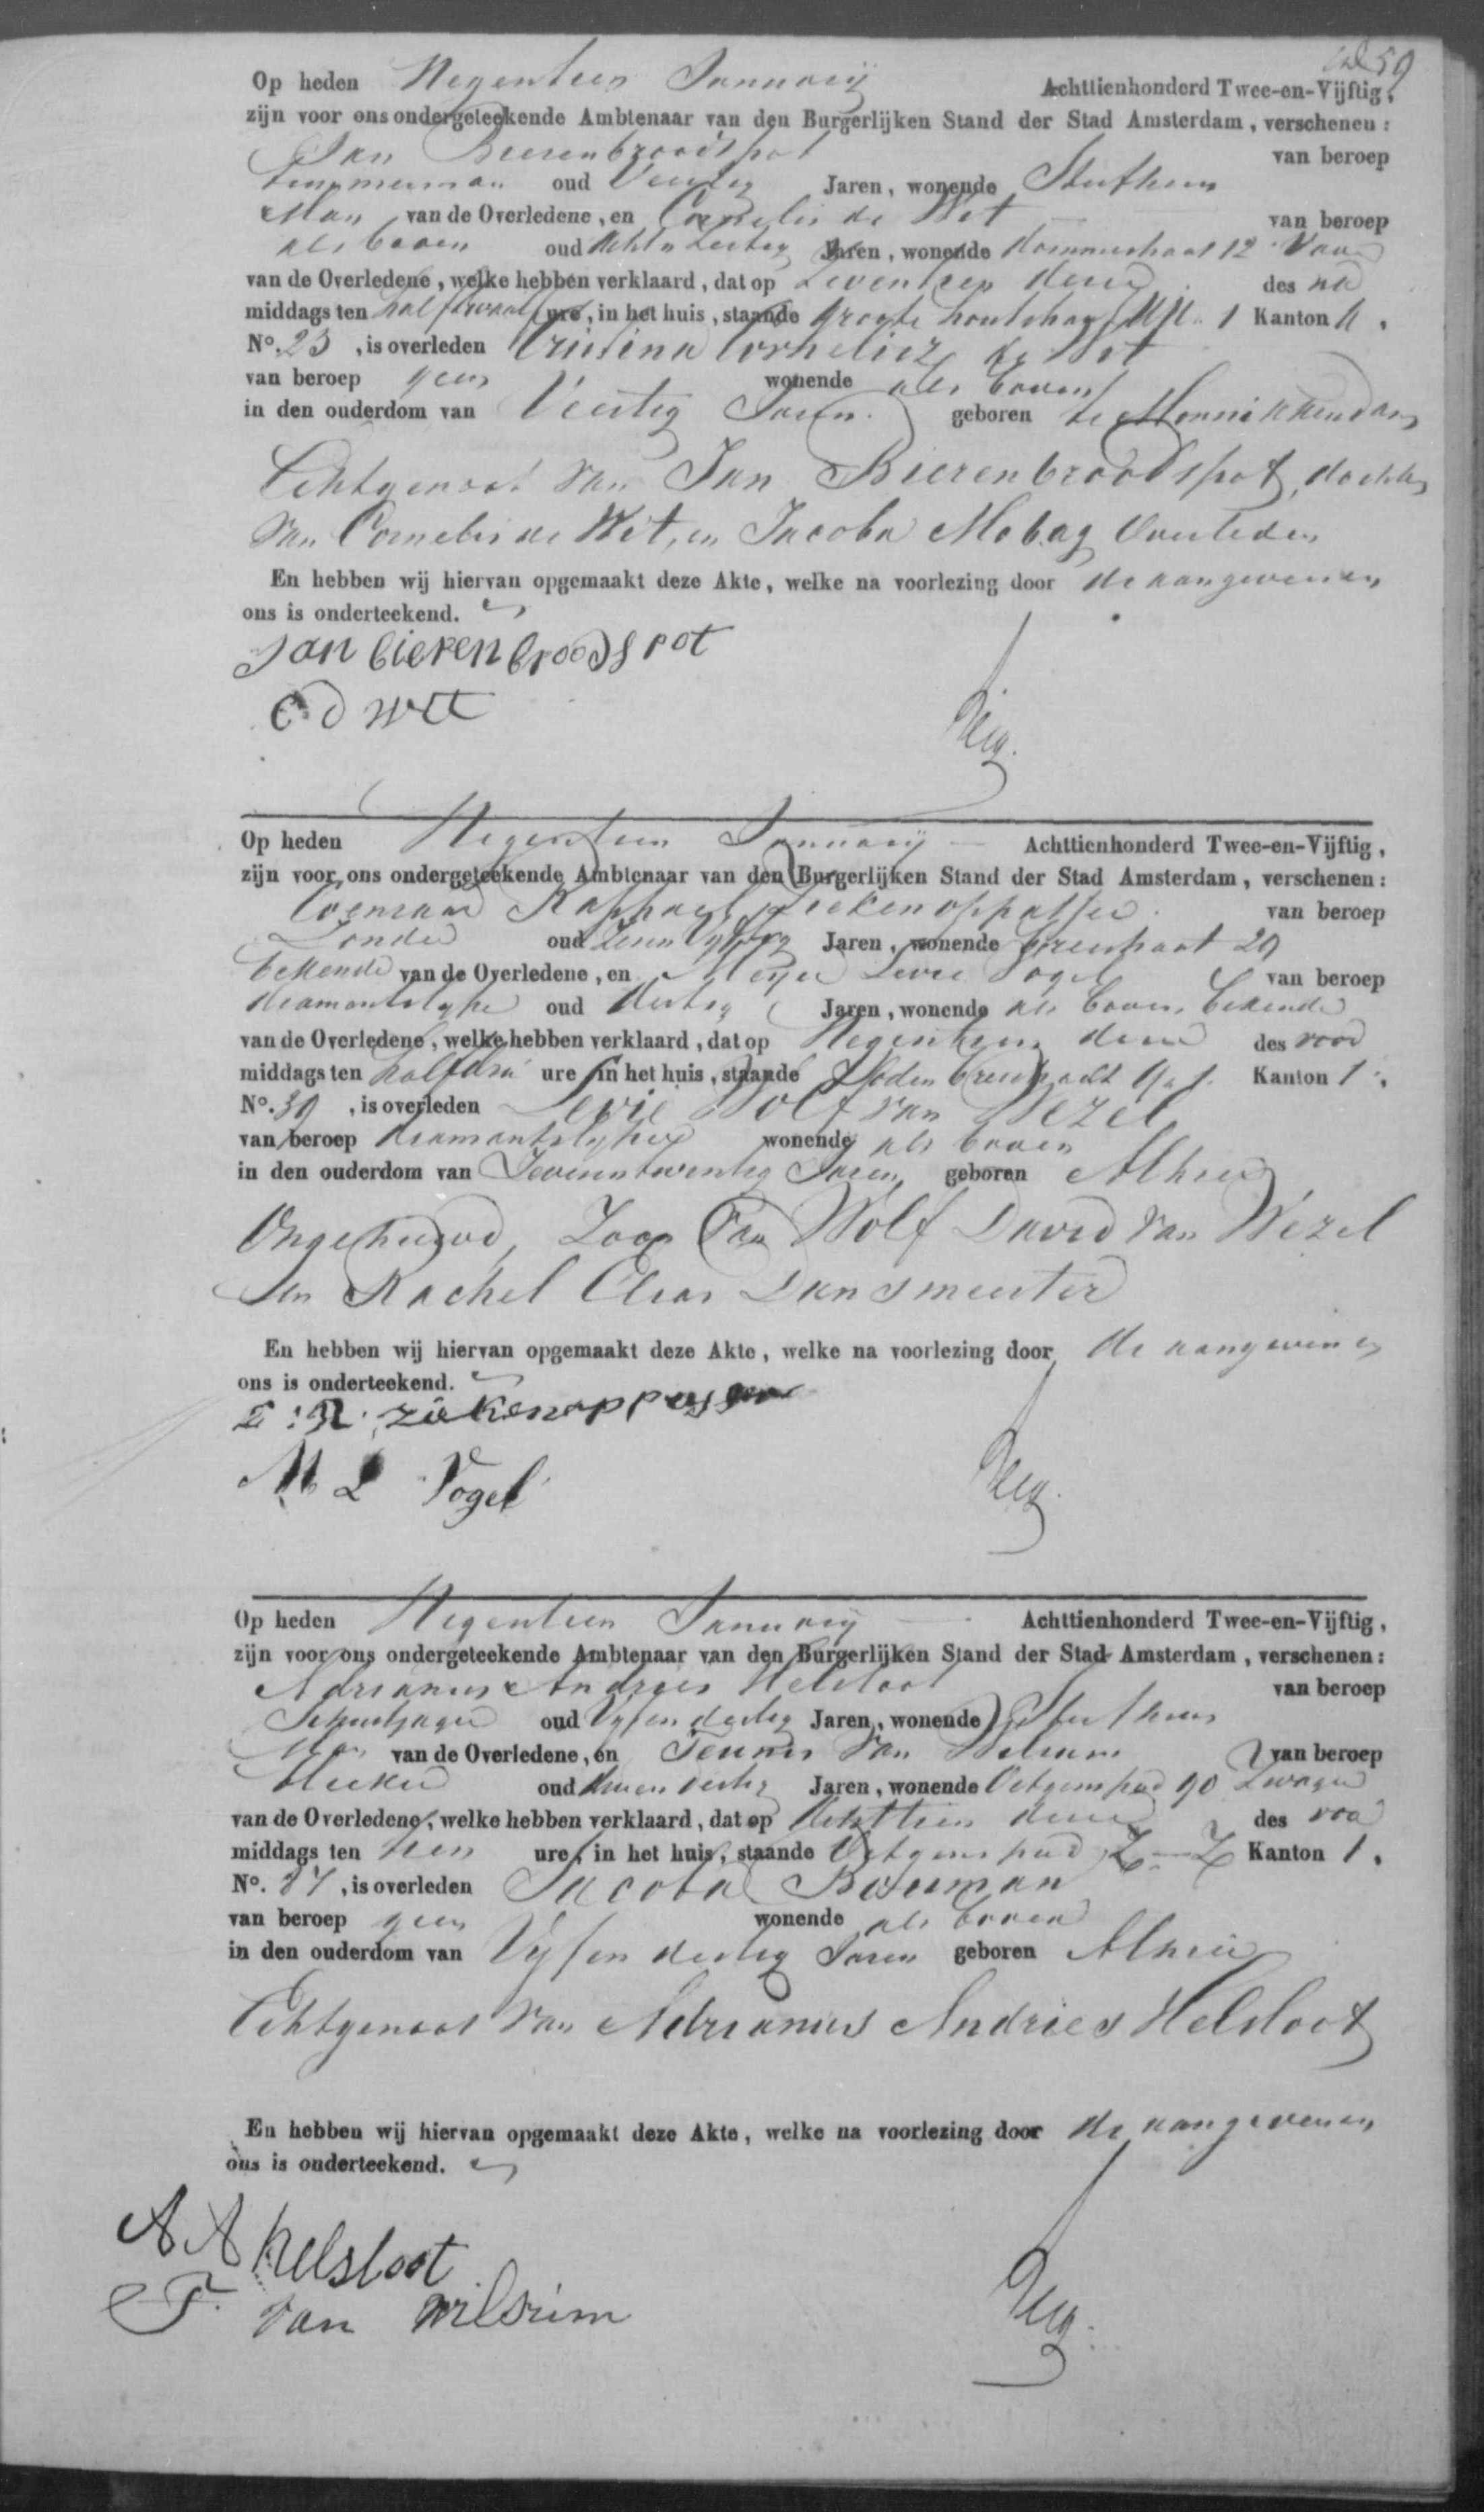 59
Op heden Negentien Januarij Achttienhonderd Twee-en-Vijftig,
zijn voor ons ondergeteekende Ambtenaar van den Burgerlijken Stand der Stad Amsterdam, verschenen:
Jan Bierenbroodspot van beroep
timmerman oud Veertig Jaren, wonende Sterfhuis
Man van de Overledene, en Cornelis de Wet van beroep
als boven oud Jaren, wonende 12
van de Overledene, welke hebben verklaard, dat op Zeventien dezer des na
middags ten half twaalf ure, in het huis, staande Groote houtstraat 1 Kanton
No. 23, is overleden Cornelisz de Wit
van beroep geen wonende als boven
in den ouderdom van Veertig Jaren geboren te Monnikkendam
Echtgenoot van Jan Bierenbroodspot, dochter
van Cornelis de Wit, en Jacoba Overleden
En hebben wij hiervan opgemaakt deze Akte, welke na voorlezing door de aangevenen
ons is onderteekend. en
Jan bierenbroodspot
C d wit
Op heden Negentien Januarij Achttienhonderd Twee-en-Vijftig,
zijn voor ons ondergeteekende Ambtenaar van den Burgerlijken Stand der Stad Amsterdam, verschenen:
Coenraad Raphael Ziekenoppasser van beroep
Zonder oud Jaren, wonende Breestraat 29
bekende van de Overledene, en Meijer Levie Vogel van beroep
diamantslyper oud dertig Jaren, wonende als boven, bekende
van de Overledene, welke hebben verklaard, dat op Negentien dezer des voor
middags ten half drie ure, in het huis, staande Joden breestraat Kanton 1,
No. 39, is overleden Levie Wolf van Wezel
van beroep diamantslyper wonende als boven
in den ouderdom van Zevenentwintig Jaren geboren Alhier
Ongehuwd, Zoon van Wolf David van Wezel
en Rachel Elias Dansmeester
En hebben wij hiervan opgemaakt deze Akte, welke na voorlezing door de aangevenen
ons is onderteekend. en
C: R: ziekenoppasser
M L Vogel
Op heden Negentien Januarij Achttienhonderd Twee-en-Vijftig,
zijn voor ons ondergeteekende Ambtenaar van den Burgerlijken Stand der Stad Amsterdam, verschenen:
Adrianus Andries Helsloot van beroep
oud Vyfendertig Jaren, wonende Sterfhuis
Man van de Overledene, en Teunis van Wilsum van beroep
oud Jaren, wonende 90 Zwager
van de Overledene, welke hebben verklaard, dat op Achttien dezer des voor
middags ten tien ure, in het huis, staande Z Z Kanton 1,
No. 87, is overleden Jacoba Bouman
van beroep geen wonende als boven
in den ouderdom van Vyfendertig Jaren geboren Alhier
Echtgenoot van Adrianus Andries Helsloot
En hebben wij hiervan opgemaakt deze Akte, welke na voorlezing door de aangevenen
ons is onderteekend. en
A A helsloot
T. van wilsum